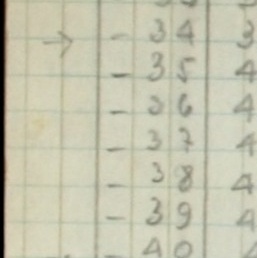 → - 34 3
- 35 4
- 36 4
- 37 4
- 38 4
- 39 4
- 40